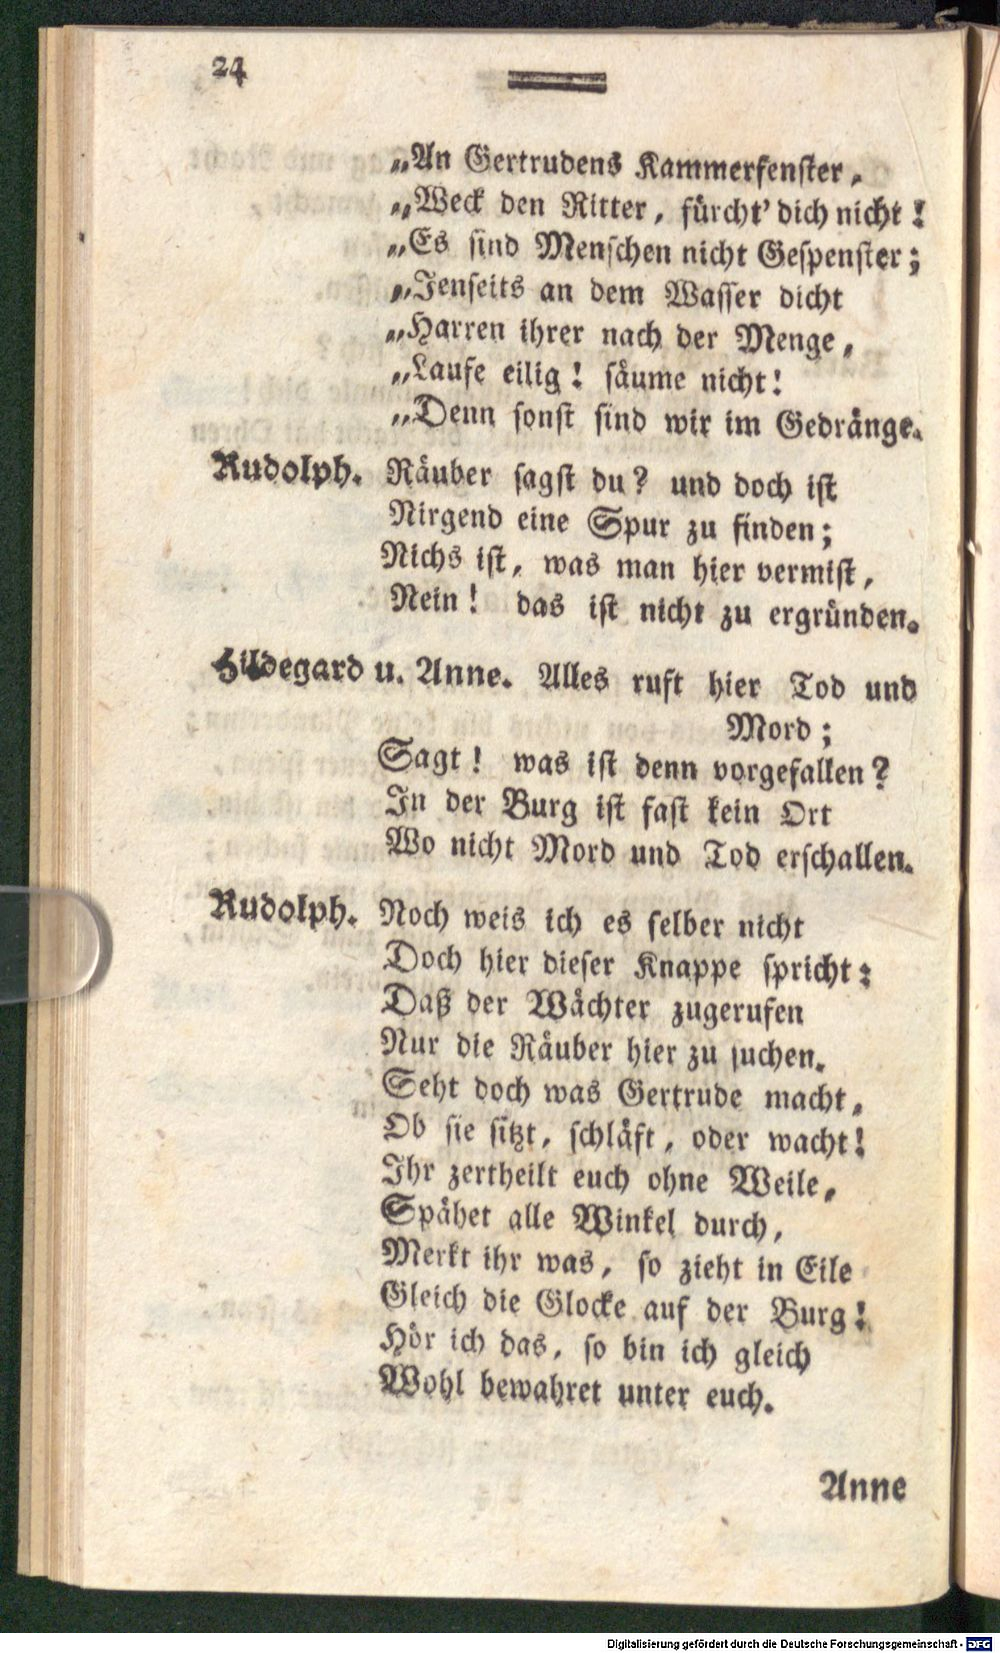 24
„An Gertrudens Kammerfenster,
„Weck den Ritter, fürcht' dich nicht!
„Es sind Menschen nicht Gespenster;
„Jenseits an dem Wasser dicht
„Harren ihrer nach der Menge,
„Laufe eilig! säume nicht!
„Denn sonst sind wir im Gedränge.
Rudolph. Räuber sagst du? und doch ist
Nirgend eine Spur zu finden;
Nichs ist, was man hier vermist,
Nein! das ist nicht zu ergründen.
Hildegard u. Anne. Alles ruft hier Tod und
Mord;
Sagt! was ist denn vorgefallen?
In der Burg ist fast kein Ort
Wo nicht Mord und Tod erschallen.
Rudolph. Noch weis ich es selber nicht
Doch hier dieser Knappe spricht:
Daß der Wächter zugerufen
Nur die Räuber hier zu suchen.
Seht doch was Gertrude macht,
Ob sie sitzt, schläft, oder wacht!
Ihr zertheilt euch ohne Weile,
Spähet alle Winkel durch,
Merkt ihr was, so zieht in Eile
Gleich die Glocke auf der Burg!
Hör ich das, so bin ich gleich
Wohl bewahret unter euch.
Anne
Digitalisierung gefördert durch die Deutsche Forschungsgemeinschaft - DFG